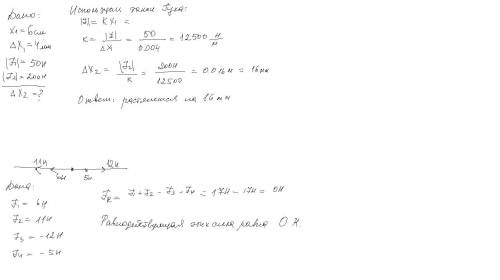 Дано:
x₁ = 6см
Δx₁ = 4мм
|F₁| = 50Н
|F₂| = 200Н
Δx₂ = ?
Используем закон Гука:
|F| = K x₁ =
K = |F| / Δx = 50 / 0.004 = 12500 Н/м
Δx₂ = |F₂| / K = 200Н / 12500 = 0.016м = 16мм
Ответ: растянется на 16 мм
11Н 6Н 5Н 12Н
Дано:
F₁ = 6Н
F₂ = 11Н
F₃ = -12Н
F₄ = -5Н
F_R = F₁ + F₂ - F₃ - F₄ = 17Н - 17Н = 0Н
Равнодействующая сила равна 0 Н.